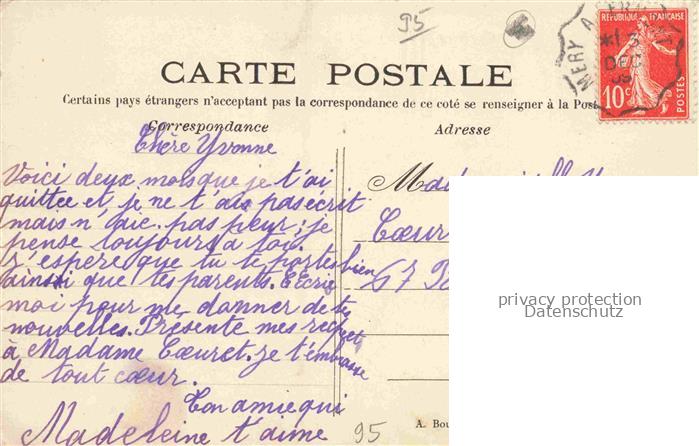 95
MERY A
* 1 3
DEC
09
REPUBLIQUE FRANÇAISE
10c
POSTES
CARTE POSTALE
Certains pays étrangers n'acceptant pas la correspondance de ce coté se renseigner à la Post
Correspondance
Adresse
Chère Yvonne
Voici deux mois que je t'ai
quittée et je ne t'ais pas ecrit
mais n'aie pas peur; je
pense toujours a toi.
J'espere que tu te portes bien
ainsi que tes parents. Ecris
moi pour me donner de tes
nouvelles. Présente mes respect
à Madame Cœuret. je t'embrasse
de tout cœur.
Ton amie qui
Madeleine t'aime
Mad
Cœur
67
95
A. Bou
privacy protection
Datenschutz